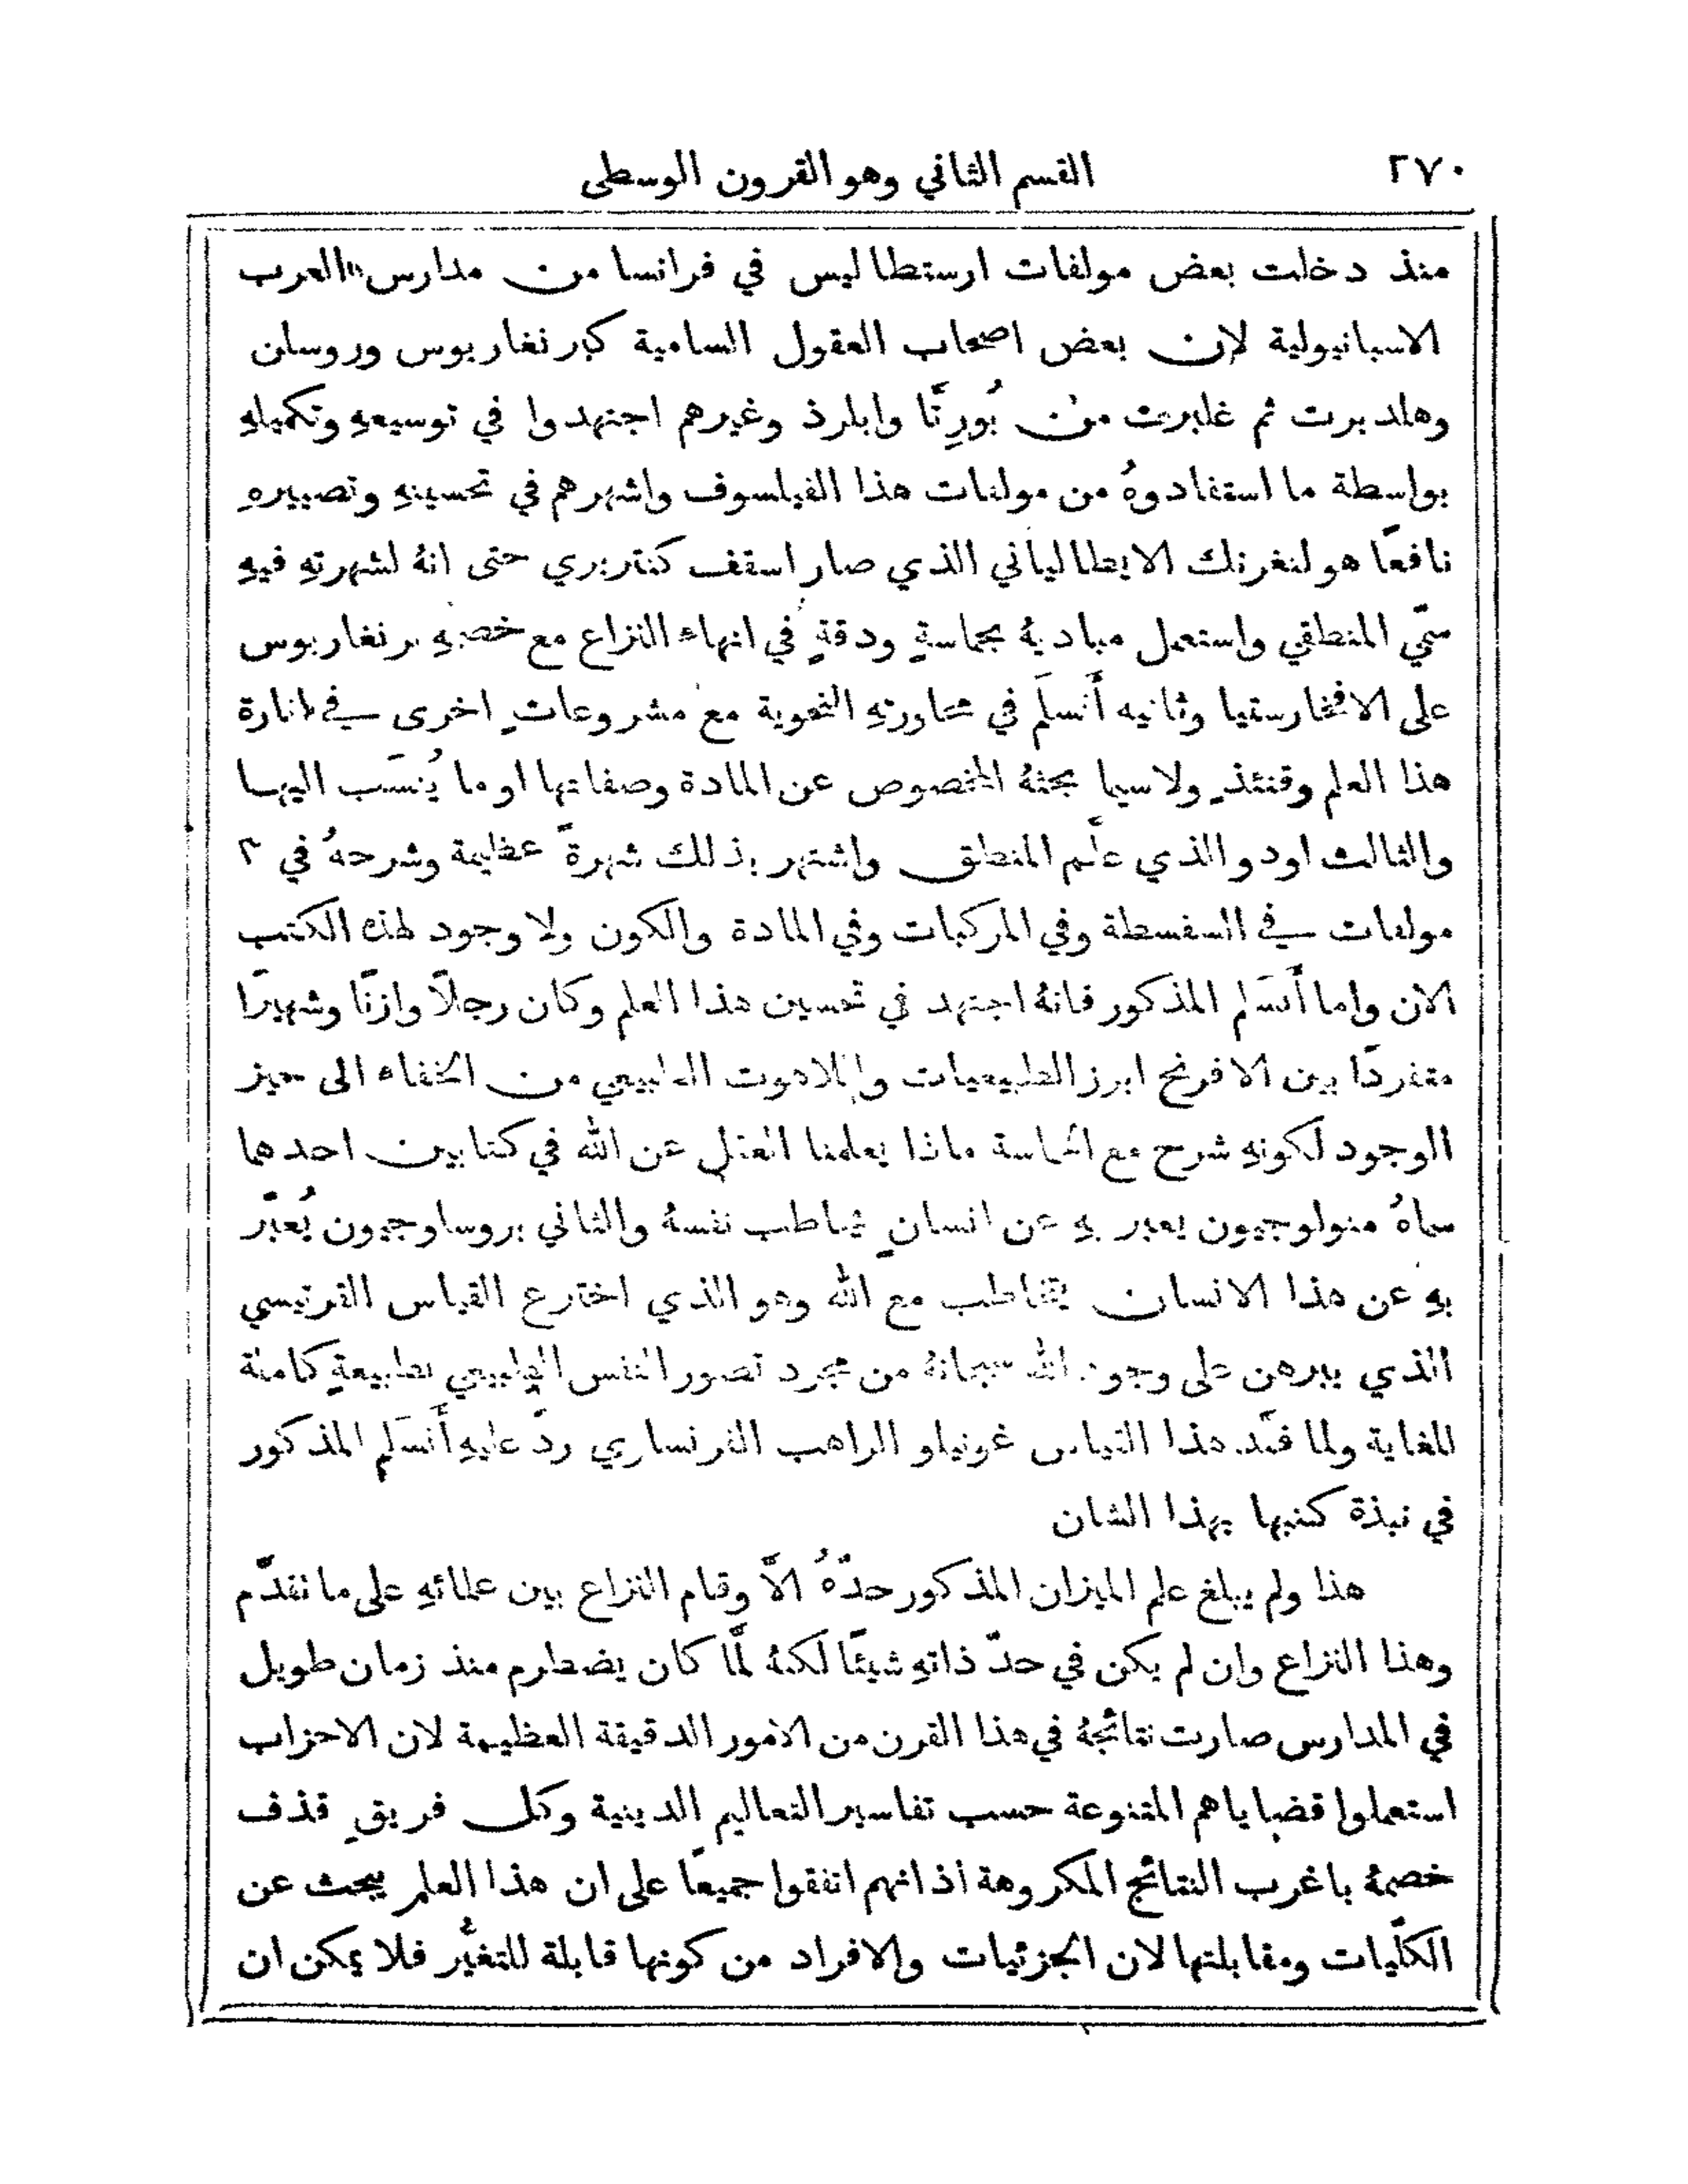 ٢٧٠ القسم الثاني وهو القرون الوسطى
منذ دخلت بعض مولفات ارستطاليس في فرانسا من مدارس العرب
الاسبانيولية لان بعض اصحاب العقول السامية كبرنغاريوس وروسلن
وهلدبرت ثم غلبرت من بُورتَّا وابلرذ وغيرهم اجتهدوا في توسيعهِ وتكميلهِ
بواسطة ما استفادوهُ من مولفات هذا الفيلسوف واشهرهم في تحسينهِ وتصييرهِ
نافعًا هو لنغرنك الايطالياني الذي صار اسقف كنتربري حتى انهُ لشهرتهِ فيهِ
سمّي المنطقي واستعمل مباديهُ بحماسةٍ ودقةٍ في انهاء النزاع مع خصمهِ برنغاريوس
على الافخارستيا وثانيه أَنسلَم في محاورتهِ النحوية مع مشروعاتٍ اخرى في انارة
هذا العلم وقتئذٍ ولا سيما بحثهُ المخصوص عن المادة وصفاتها او ما يُنسَب اليها
والثالث اودو الذي علَّم المنطق واشتهر بذلك شهرةً عظيمة وشرحهُ في ٣
مولفات في السفسطة وفي المركبات وفي المادة والكون ولا وجود لهذه الكتب
الان واما أَنسَلم المذكور فانهُ اجتهد في تحسين هذا العلم وكان رجلاً وازنًا وشهيرًا
متفردًا بين الافرنج ابرز الطبيعيات واللاهوت الطبيعي من الخفاء الى حيز
الوجود لكونهِ شرح مع الحماسة ماذا يعلمنا العقل عن الله في كتابين احدهما
سماهُ منولوجيون يعبر بهِ عن انسانٍ يخاطب نفسهُ والثاني بروساوجيون يُعبَّر
بهِ عن هذا الانسان يتخاطب مع الله وهو الذي اخترع القياس القرتيسي
الذي يبرهن على وجود الله سبحانهُ من مجرد تصور النفس الطبيعي بطبيعةٍ كاملة
للغاية ولما فنَّد هذا القياس غونيلو الراهب الفرنساري ردَّ عليهِ أَنسَلم المذكور
في نبذة كتبها بهذا الشان
هذا ولم يبلغ علم الميزان المذكور حدَّهُ الَّا وقام النزاع بين علمائهِ على ما تقدَّم
وهذا النزاع وان لم يكن في حدّ ذاتهِ شيئًا لكنهُ لمَّا كان يضطرم منذ زمان طويل
في المدارس صارت نتائجهُ في هذا القرن من الامور الدقيقة العظيمة لان الاحزاب
استعملوا قضاياهم المتنوعة حسب تفاسير التعاليم الدينية وكل فريقٍ قذف
خصمهُ باغرب النتائج المكروهة اذ انهم اتفقوا جميعًا على ان هذا العلم يبحث عن
الكلّيات ومقابلتها لان الجزئيات والافراد من كونها قابلة للتغيُّر فلا يمكن ان